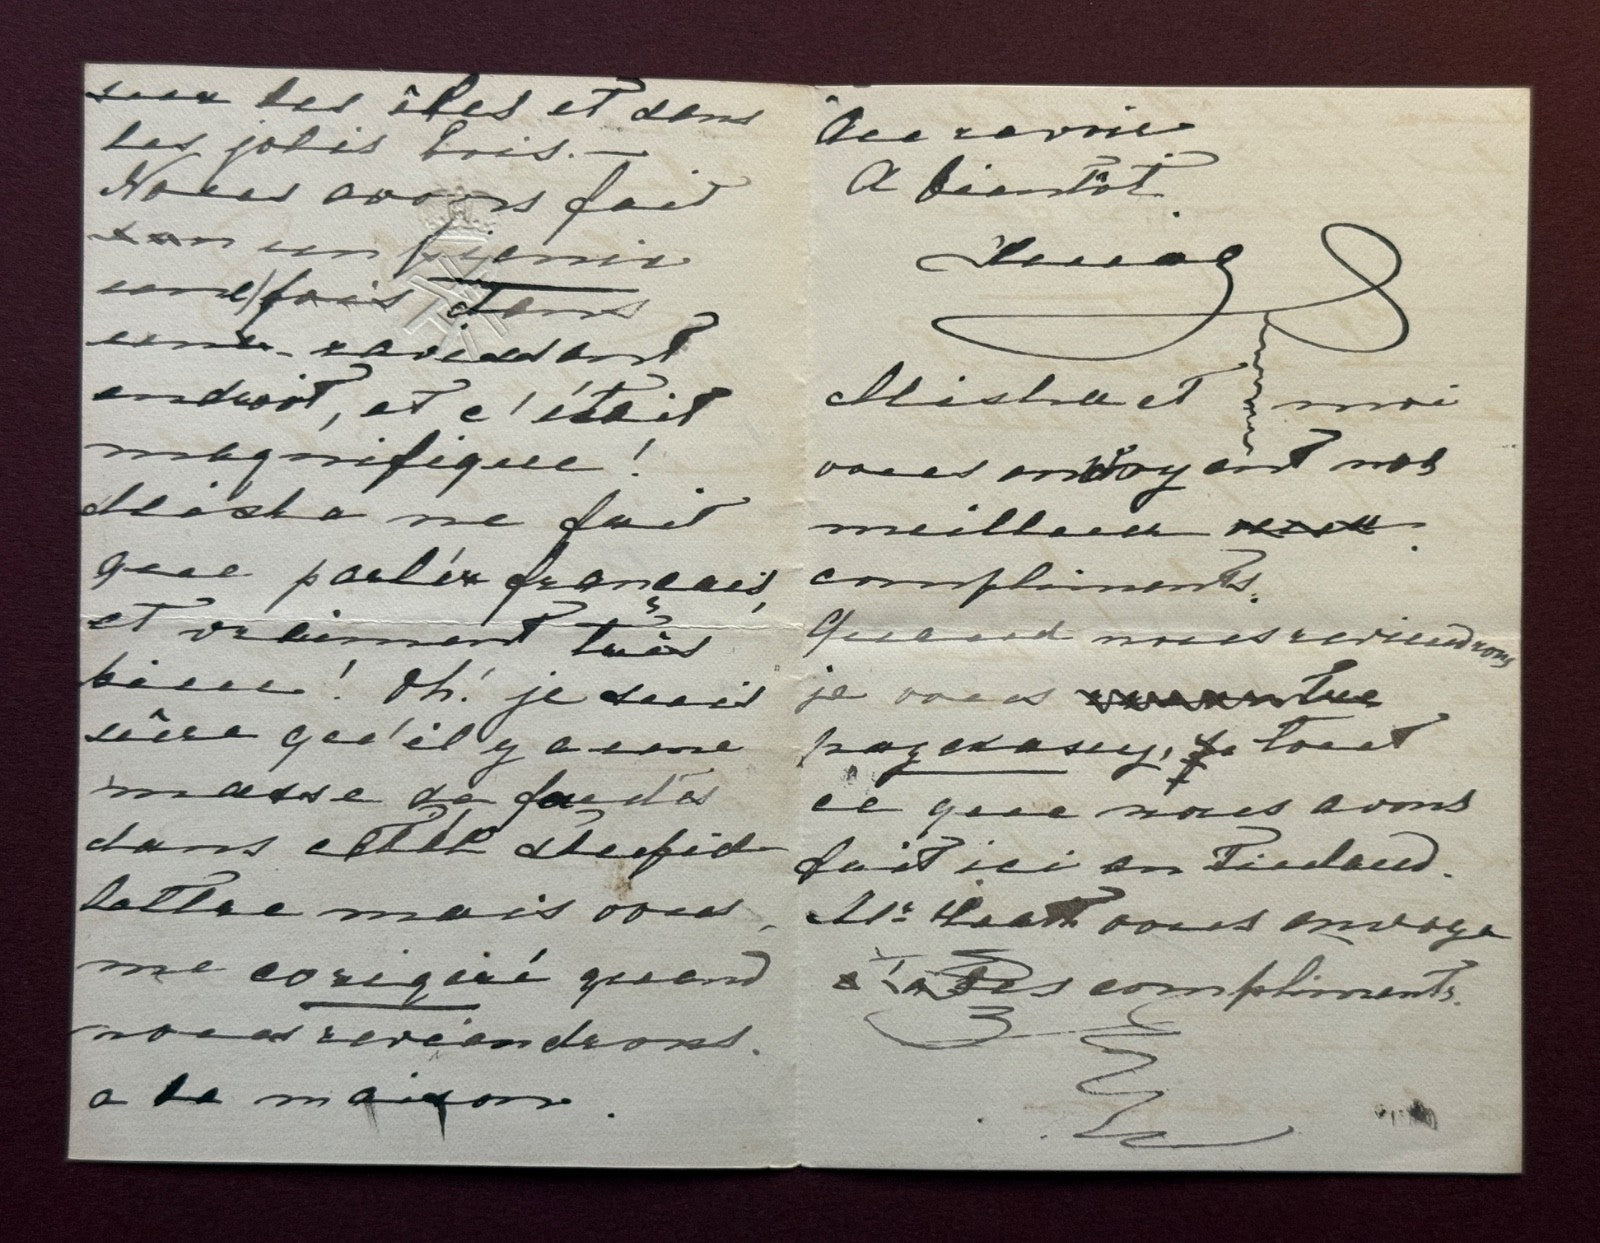 sur les îles et dans
les jolis bois. —
Nous avons fait
un picnic
une fois dans
une ravissant
endroit, et c'était
magnifique!
Misha ne fait
que parlér français,
et vraiment très
bien! Oh! je suis
sûre qu'il y a une
masse de fautes
dans cette stupide
lettre mais vous
me corigiré quand
nous reviendrons.
a la maison.
Au revoir
A bientôt
Misha et moi
vous envoyent nos
meilleur
compliments.
Quand nous reviendrons
je vous
tout
ce que nous avons
fait ici en Finland.
Mr Heath vous envoye
ses compliments.